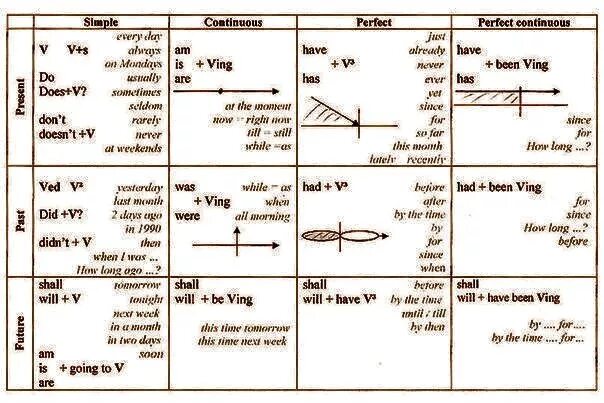 Simple Continuous Perfect Perfect continuous
Present
every day
V V+s always
on Mondays
Do usually
Does+V? sometimes
seldom
don't rarely
doesn't +V never
at weekends
am
is + Ving
are
at the moment
now = right now
till = still
while =as
just
have already
+ V³ never
has ever
yet
since
for
so far
this month
lately recently
have
+ been Ving
has
since
for
How long ...?
Past
Ved V² yesterday
last month
Did +V? 2 days ago
in 1990
didn't + V then
when I was ...
How long ago ...?
was while = as
+ Ving when
were all morning
had + V³ before
after
by the time
by
for
since
when
had + been Ving
for
since
How long ...?
before
Future
shall tomorrow
will + V tonight
next week
in a month
in two days
am soon
is + going to V
are
shall
will + be Ving
this time tomorrow
this time next week
shall before
will + have V³ by the time
until / till
by then
shall
will + have been Ving
by .... for....
by the time .... for...